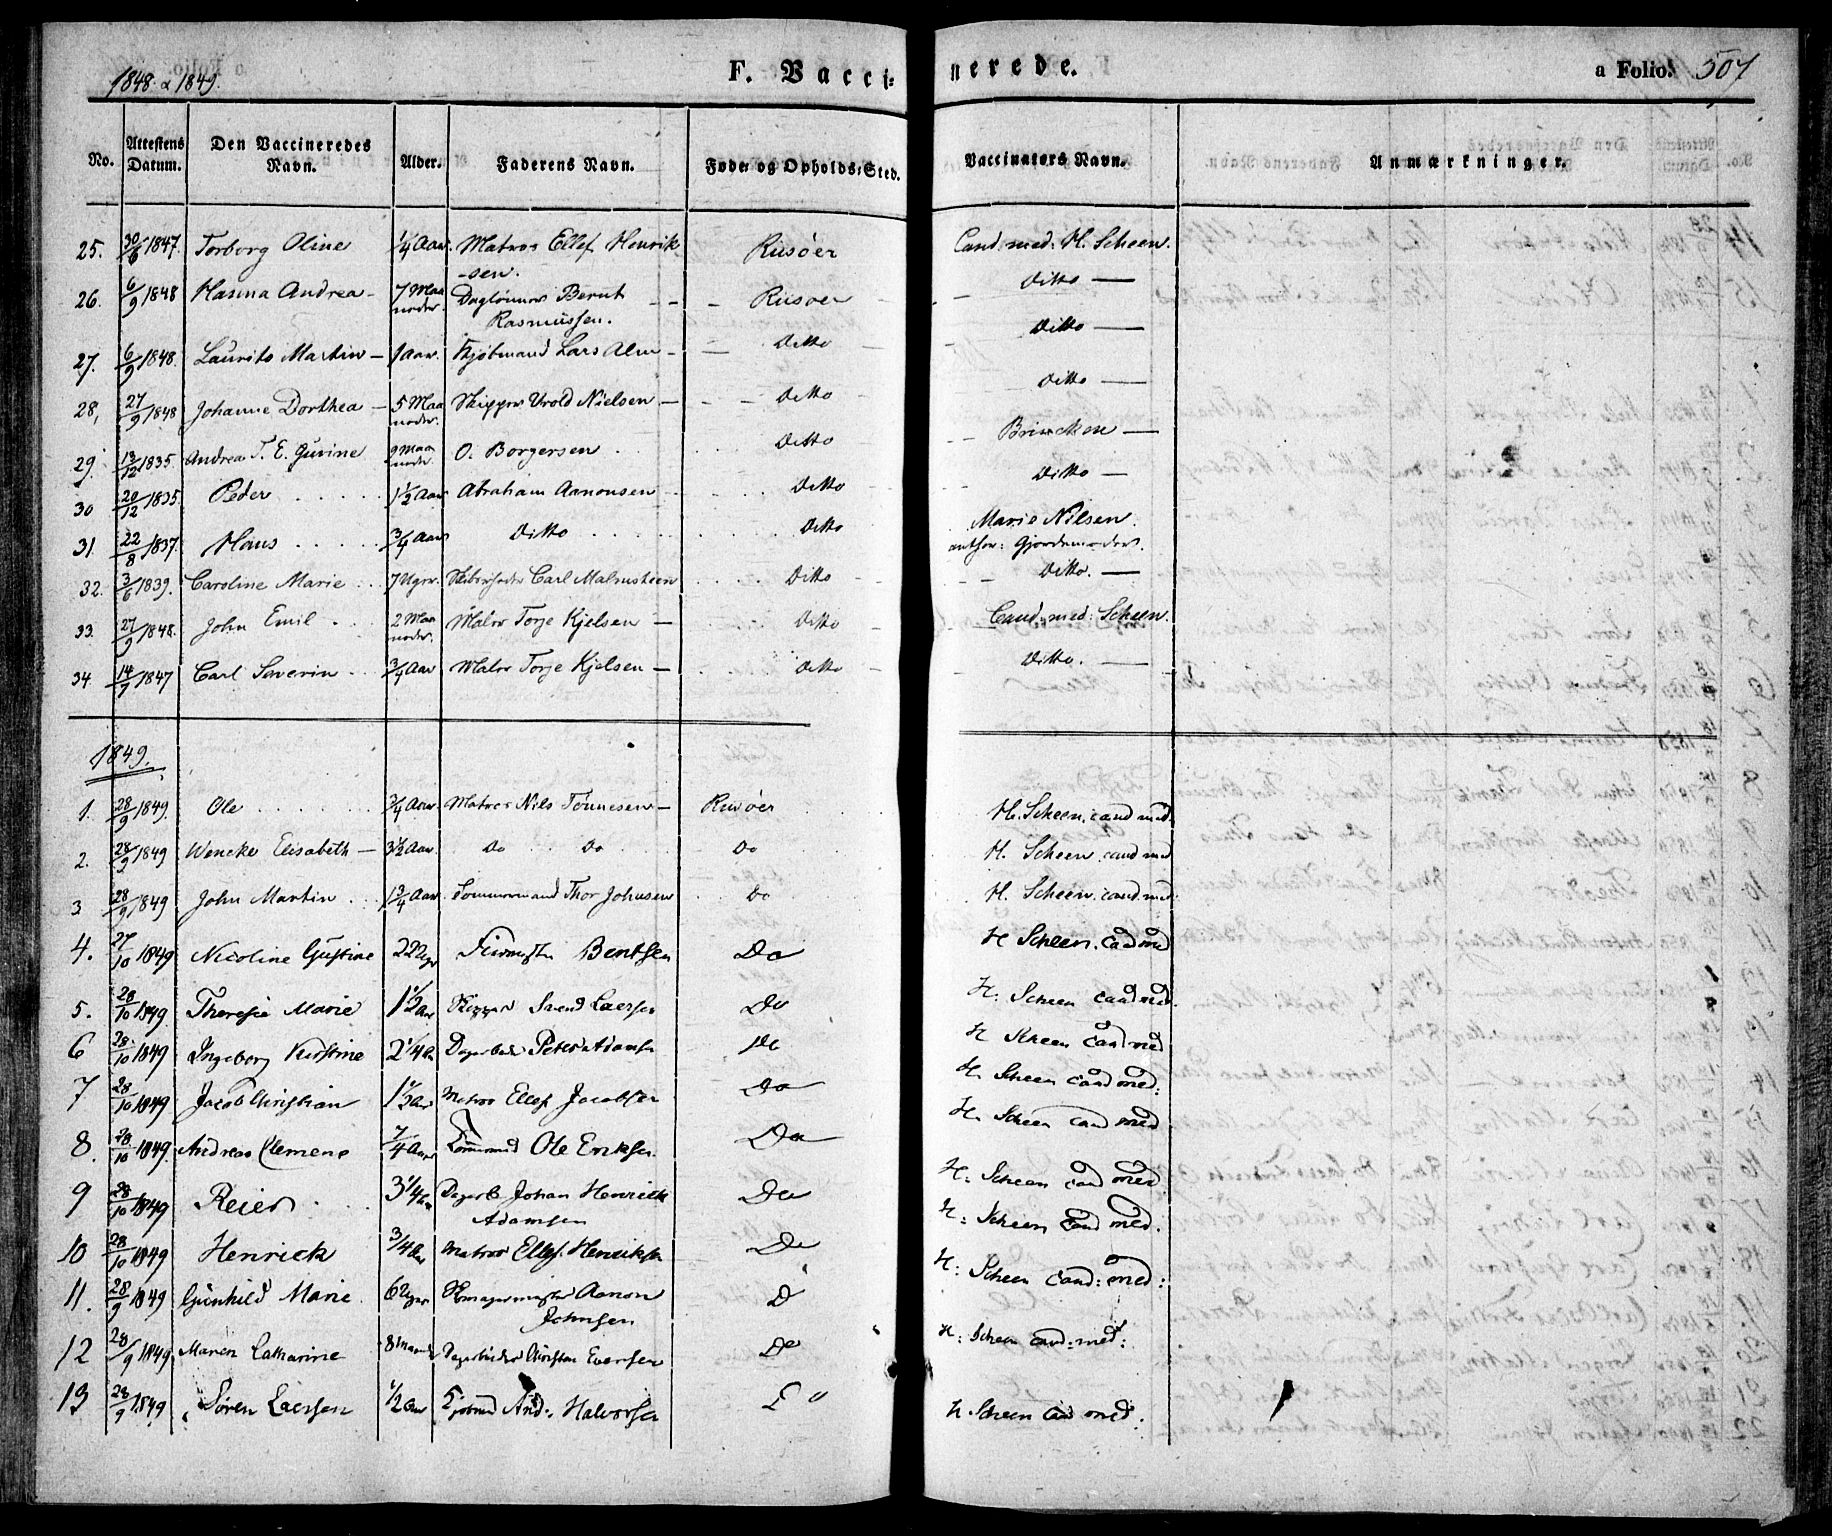 1848. & 1849.
F. Vaccinerede.
a Folio. 507
No. Attestens Datum. Den Vaccineredes Navn. Alder. Faderens Navn. Føde- og Opholds-Sted. Vaccinators Navn. Anmærkninger.
25. 30/6 1847. Torborg Oline 1/4 Aar. Matros Ellef Henrik- Risøer Cand. med. H. Scheen.
-sen.
26. 6/9 1848 Hanna Andrea - 7 Maa Daglønner Bernt - - - Risøer Ditto -
noder. Rasmussen.
27. 6/9 1848. Laurits Martin - 1 Aar. Kjøbmand Lars Alm - - Ditto Ditto -
28. 27/9 1848 Johanne Dorthea - 5 Maa Skipper Urold Nielsen - - - Ditto Ditto -
noder.
29. 13/12 1835 Andrea T. E. Gurine 9 Maa O. Borgersen . . . Ditto Brincken -
noder.
30 20/12 1835 Peder . . . . 1 1/2 Aar Abraham Aanonsen - Ditto Ditto -
31. 22/8 1837. Hans . . . . 3/4 Aar Ditto . . . . . Ditto Marie Nilsen.
author: Gjordemoder.
32. 3/6 1839. Caroline Marie . . 7 Uger. Skibsreder Carl Malmsteen . . . . Ditto Ditto. -
33. 27/9 1848. John Emil . . 2 Maa Matros Torje Kjelsen - . . . . Ditto Cand. med: Scheen.
noder.
34 14/7 1847 Carl Severin . . 3/4 Aar Matros Torje Kjelsen - Ditto Ditto. -
1849.
1. 28/9 1849. Ole . . . . . 3/4 Aar Matros Nils Tønnesen - Risøer H. Scheen. cand med.
2. 28/9 1849 Wencke Elisabeth - 3 1/2 Aar Do Do Do H. Scheen. cand med
3 28/9 1849 John Martin . . 1 3/4 Aar Tømmermand Thor Johnsen . . Do H. Scheen. cand. med.
4. 27/10 1849 Nicoline Gustine 22 Uger Bentsen Do H Scheen. cad med
5. 28/10 1849. Theresie Marie 1 1/2 Aar Skipper Svend Laersen Do H. Scheen cand med.
6 28/10 1849 Ingeborg Kirstine 2 1/4 Aar Dagarbeider Peter Adamsen Do H Scheen cand med
7 28/10 1849 Jacob Christian 1 1/3 Aar Matros Ellef Jacobsen Do H. Scheen cand med:
8. 28/10 1849. Andreas Clemens 7/4 Aar Tømmermd Ole Eriksen Do H. Scheen cand med
9 28/10 1849 Reier . . 3 1/4 Aar Dagarb. Johan Henrick Do H: Scheen cand med.
Adamsen
10 28/10 1849 Henrick 3/4 Aar Matros Ellef. Henriksen Do H: Scheen cand med.
11. 28/9 1849 Gunhild Marie 6 Uger Aanon D H: Scheen cand: med:
Johnsen
12 28/9 1849 Maren Catharine 8 Maaned Dagarbeider Christen Eversen Do H: Scheen cand: med:
13 28/9 1849 Søren Laersen 1/2 Aar And: Halvorsen " H. Scheen cand med.